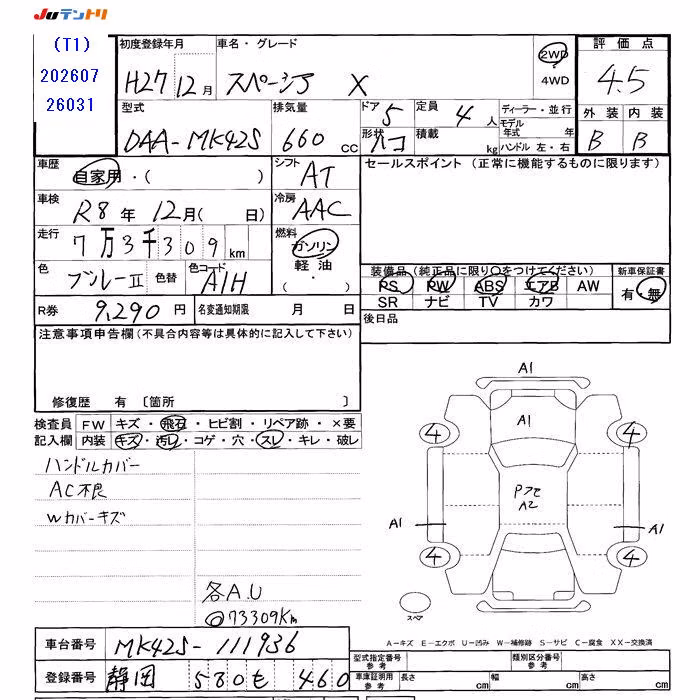 JUテントリ
(T1)
202607
26031
初度登録年月
H27 12月
車名・グレード
スペーシア X
2WD
4WD
評価点
4.5
型式
DAA-MK42S
排気量
660 cc
ドア 5
形状 ハコ
定員 4 人
積載 kg
ディーラー・並行
モデル年式 年
ハンドル 左・右
外装 内装
B B
車歴 自家用・( )
シフト AT
セールスポイント (正常に機能するものに限ります)
車検 R8年 12月( 日)
冷房 AAC
走行 7万3千309km
燃料 ガソリン
軽油
( ・ )
色 ブルーII 色替 色コード A1H
装備品(純正品に限り○をつけてください)
新車保証書
PS PW ABS エアB AW
有・無
SR ナビ TV カワ
R券 9,290円 名変通知期限 月 日
後日品
注意事項申告欄(不具合内容等は具体的に記入して下さい)
修復歴 有 〔箇所 〕
検査員 FW キズ・飛石・ヒビ割・リペア跡・×要
記入欄 内装 キズ・汚レ・コゲ・穴・スレ・キレ・破レ
ハンドルカバー
AC不良
Wカバーキズ
各A.U
@73309Km
A1
A1
4 4
A2
A1 A1
4 4
スペア
A-キズ E-エクボ U-凹み W-補修跡 S-サビ C-腐食 XX-交換済
車台番号 MK42S-111936
登録番号 静岡 580 も 460
型式指定番号 参考 類別区分番号 参考
車庫証明用 参考 長さ cm 幅 cm 高さ cm